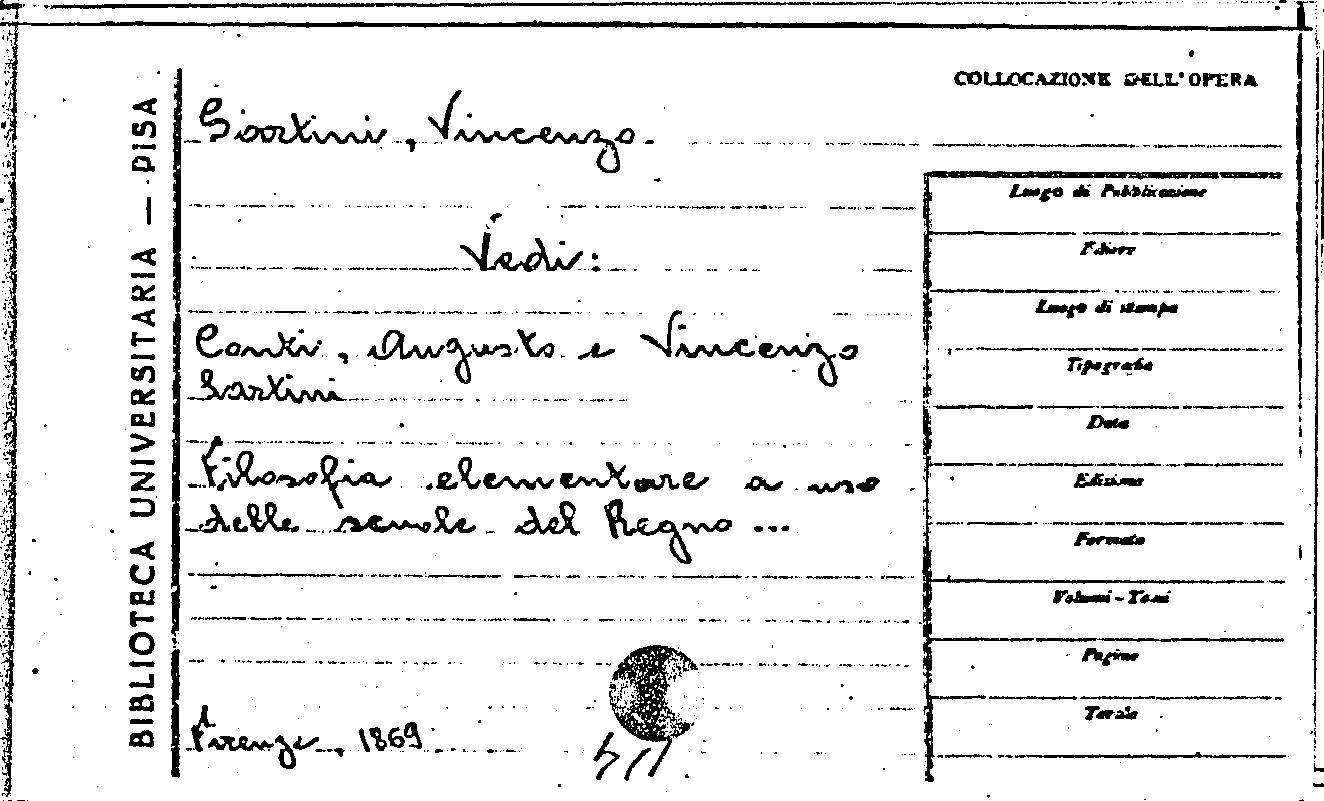 BIBLIOTECA UNIVERSITARIA — PISA
Sartini, Vincenzo.
Vedi:
Conti, Augusto e Vincenzo
Sartini
Filosofia elementare a uso
delle scuole del Regno...
Firenze, 1869
COLLOCAZIONE DELL'OPERA
Luogo di Pubblicazione
Editore
Luogo di stampa
Tipografia
Data
Edizione
Formato
Volumi - Tomi
Pagine
Tavole